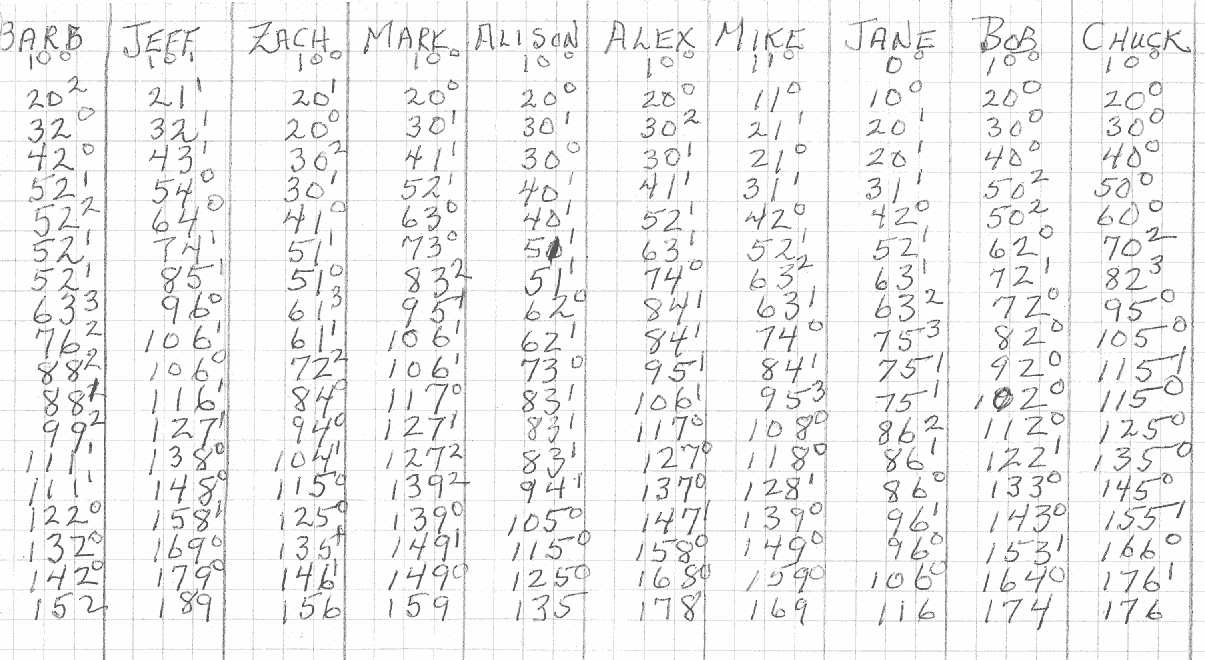 BARB JEFF ZACH MARK ALISON ALEX MIKE JANE BOB CHUCK
10⁰ 10¹ 10⁰ 10⁰ 10⁰ 10⁰ 11⁰ 0⁰ 10⁰ 10⁰
20² 21¹ 20¹ 20⁰ 20⁰ 20⁰ 11⁰ 10⁰ 20⁰ 20⁰
32⁰ 32¹ 20⁰ 30¹ 30¹ 30² 21¹ 20¹ 30⁰ 30⁰
42⁰ 43¹ 30² 41¹ 30⁰ 30¹ 21⁰ 20¹ 40⁰ 40⁰
52¹ 54⁰ 30¹ 52¹ 40¹ 41¹ 31¹ 31¹ 50² 50⁰
52² 64⁰ 41⁰ 63⁰ 40¹ 52¹ 42⁰ 42⁰ 50² 60⁰
52¹ 74¹ 51¹ 73⁰ 63¹ 52¹ 52¹ 62⁰ 70²
52¹ 85¹ 51⁰ 83² 51¹ 74⁰ 63² 63¹ 72¹ 82³
63³ 96⁰ 61³ 95¹ 62⁰ 84¹ 63¹ 63² 72⁰ 95⁰
76² 106¹ 61¹ 106¹ 62¹ 84¹ 74⁰ 75³ 82⁰ 105⁰
88² 106⁰ 72² 106¹ 73⁰ 95¹ 84¹ 75¹ 92⁰ 115¹
88¹ 116¹ 84⁰ 117⁰ 83¹ 106¹ 95³ 75¹ 102⁰ 115⁰
99² 127¹ 94⁰ 127¹ 83¹ 117⁰ 108⁰ 86² 112⁰ 125⁰
111¹ 138⁰ 104¹ 127² 83¹ 127⁰ 118⁰ 86¹ 122¹ 135⁰
111¹ 148⁰ 115⁰ 139² 94¹ 137⁰ 128¹ 86⁰ 133⁰ 145⁰
122⁰ 158¹ 125⁰ 139⁰ 105⁰ 147¹ 139⁰ 96¹ 143⁰ 155¹
132⁰ 169⁰ 135¹ 149¹ 115⁰ 158⁰ 149⁰ 96⁰ 153¹ 166⁰
142⁰ 179⁰ 146¹ 149⁰ 125⁰ 168⁰ 159⁰ 106⁰ 164⁰ 176¹
152 189 156 159 135 178 169 116 174 176